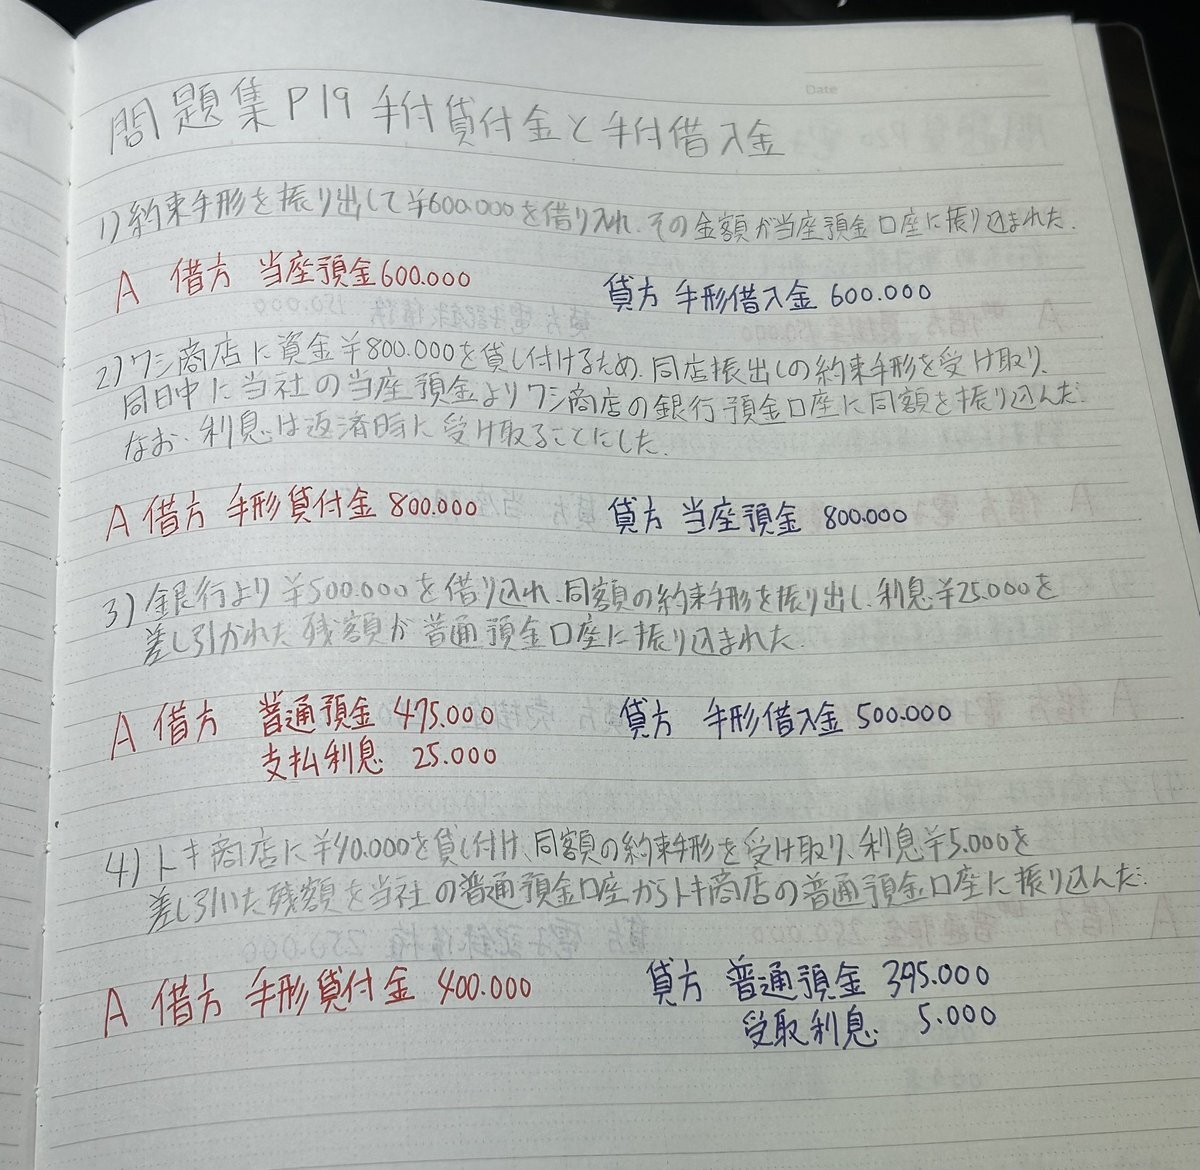 Date
問題集P19 手付貸付金と手付借入金
1)約束手形を振り出して¥600.000を借り入れ、その金額が当座預金口座に振り込まれた.
A 借方 当座預金600.000 貸方 手形借入金 600.000
2)ワシ商店に資金¥800.000を貸し付けるため.同店振出しの約束手形を受け取り、
同日中に当社の当座預金よりワシ商店の銀行預金口座に同額を振り込んだ.
なお、利息は返済時に受け取ることにした.
A 借方 手形貸付金 800.000 貸方 当座預金 800.000
3)銀行より¥500.000を借り入れ、同額の約束手形を振り出し、利息¥25.000を
差し引かれた残額が普通預金口座に振り込まれた.
A 借方 普通預金 475.000 貸方 手形借入金 500.000
支払利息 25.000
4)トキ商店に¥40.000を貸し付け、同額の約束手形を受け取り、利息¥5.000を
差し引いた残額を当社の普通預金口座からトキ商店の普通預金口座に振り込んだ.
A 借方 手形貸付金 400.000 貸方 普通預金 395.000
受取利息 5.000